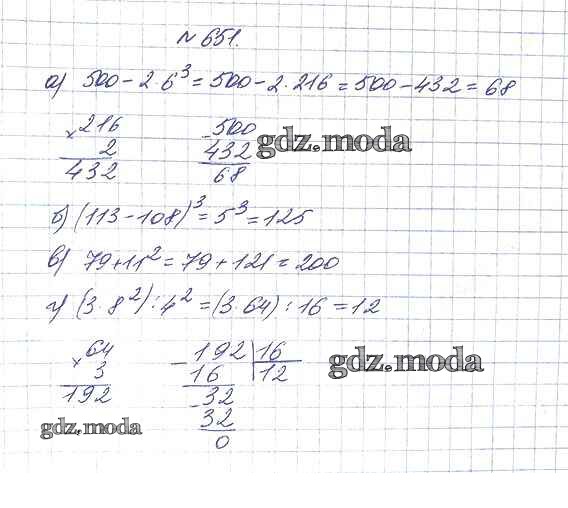 № 651.
а) 500 - 2 · 6³ = 500 - 2 · 216 = 500 - 432 = 68
× 216
2
432
- 500
432
68
gdz.moda
б) (113 - 108)³ = 5³ = 125
в) 79 + 11² = 79 + 121 = 200
г) (3 · 8²) : 4² = (3 · 64) : 16 = 12
× 64
3
192
- 192 | 16
16 | 12
- 32
32
0
gdz.moda
gdz.moda